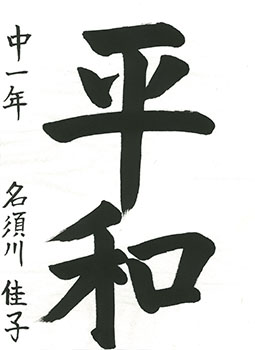 平和
中一年 名須川佳子